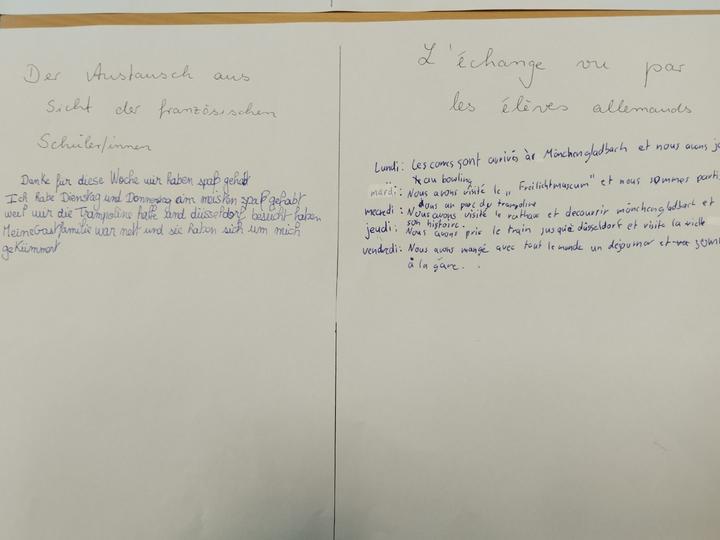 Der Austausch aus
Sicht der französischen
Schüler/innen
Danke für diese Woche wir haben spaß gehabt
Ich habe Dienstag und Donnerstag am meisten spaß gehabt
weil wir die Trampoline halle und düsseldorf besucht haben
Meine Gastfamilie war nett und sie haben sich um mich
gekümmert
L'échange vu par
les élèves allemands
Lundi: Les corres sont arrivés à Mönchengladbach et nous avons
au bowling
mardi: Nous avons visité le "Freilichtmuseum" et nous sommes
dans un parc du trampoline
mecredi: Nous avons visité le rathaus et decouvrir mönchengladbach et
son histoire.
jeudi: Nous avons pris le train jusqu'à düsseldorf et visite la ville
vendredi: Nous avons mangé avec tout le monde un déjeuner et
à la gare.